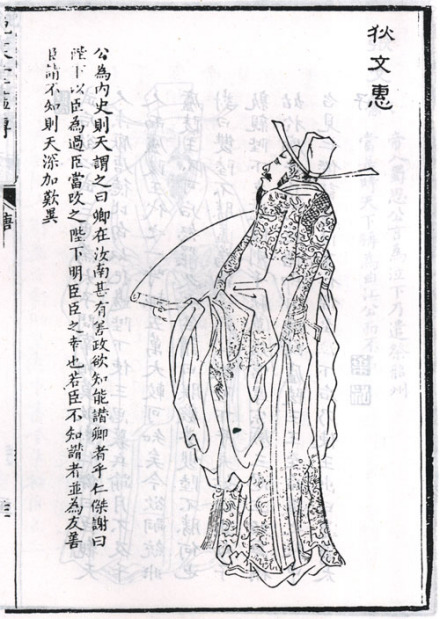 狄文惠
公為內史則天謂之曰卿在汝南甚有善政欲知能譖卿者乎仁傑謝曰
陛下以臣為過臣當改之陛下明臣臣之幸也若臣不知譖者並為友善
臣請不知則天深加歎異